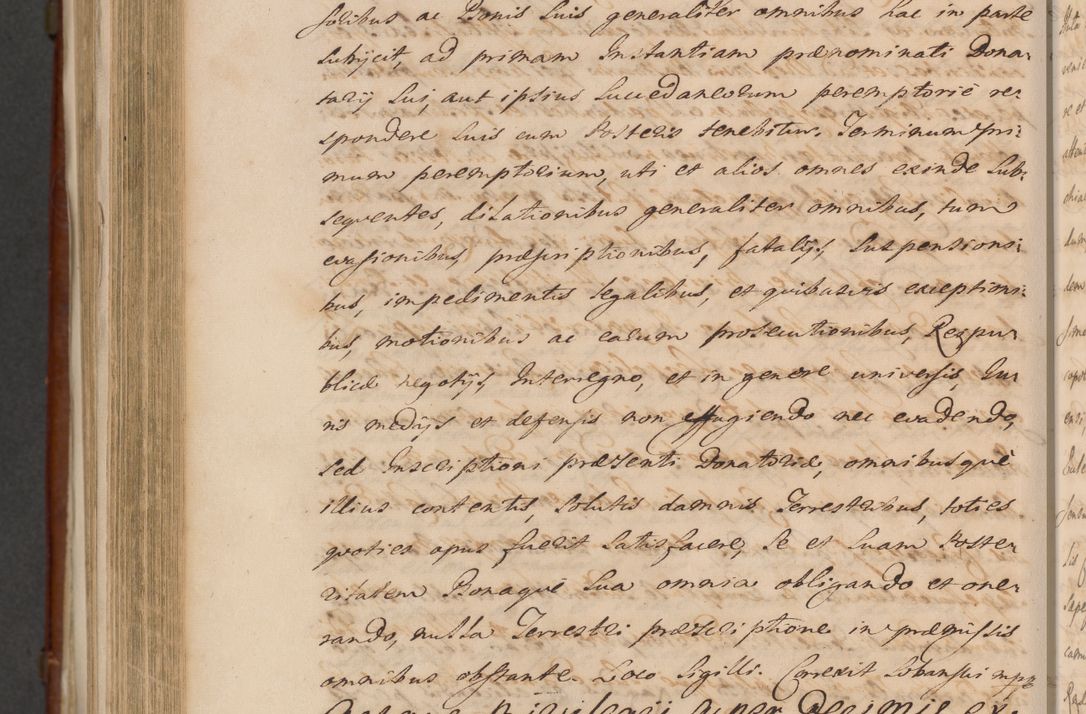 solibus ac Bonis Suis generaliter omnibus hac in parte
subijcit, ad primam Instantiam prænominati Dona:
tarij Sui, aut ipsius Succedaneorum peremptorie re:
spondere Suis cum Posteris tenebitur. Terminum pri:
mum peremptorium, uti et alios omnes exinde Sub:
sequentes, dilationibus generaliter omnibus, tum
evasionibus, præscriptionibus, fatalijs, Suspensioni:
bus, impedimentis legalibus, et quibusvis exceptioni:
bus, motionibus ac earum prosecutionibus, Reipu:
blicæ negotijs, Interregno, et in genere universis, Ju:
ris medijs et defensis non effugiendo nec evadendo,
sed Inscriptioni præsenti Donatoriæ, omnibusque
illius contentis, Solutis damnis Terrestribus, toties
quoties opus fuerit Satisfacere, Se et Suam Poste:
ritatem Bonaque Sua omnia obligando et one:
rando, nulla Terrestri præscriptione in præmissis
omnibus obstante. Loco Sigilli. Correxit mpp
Privilegij Super Decimis